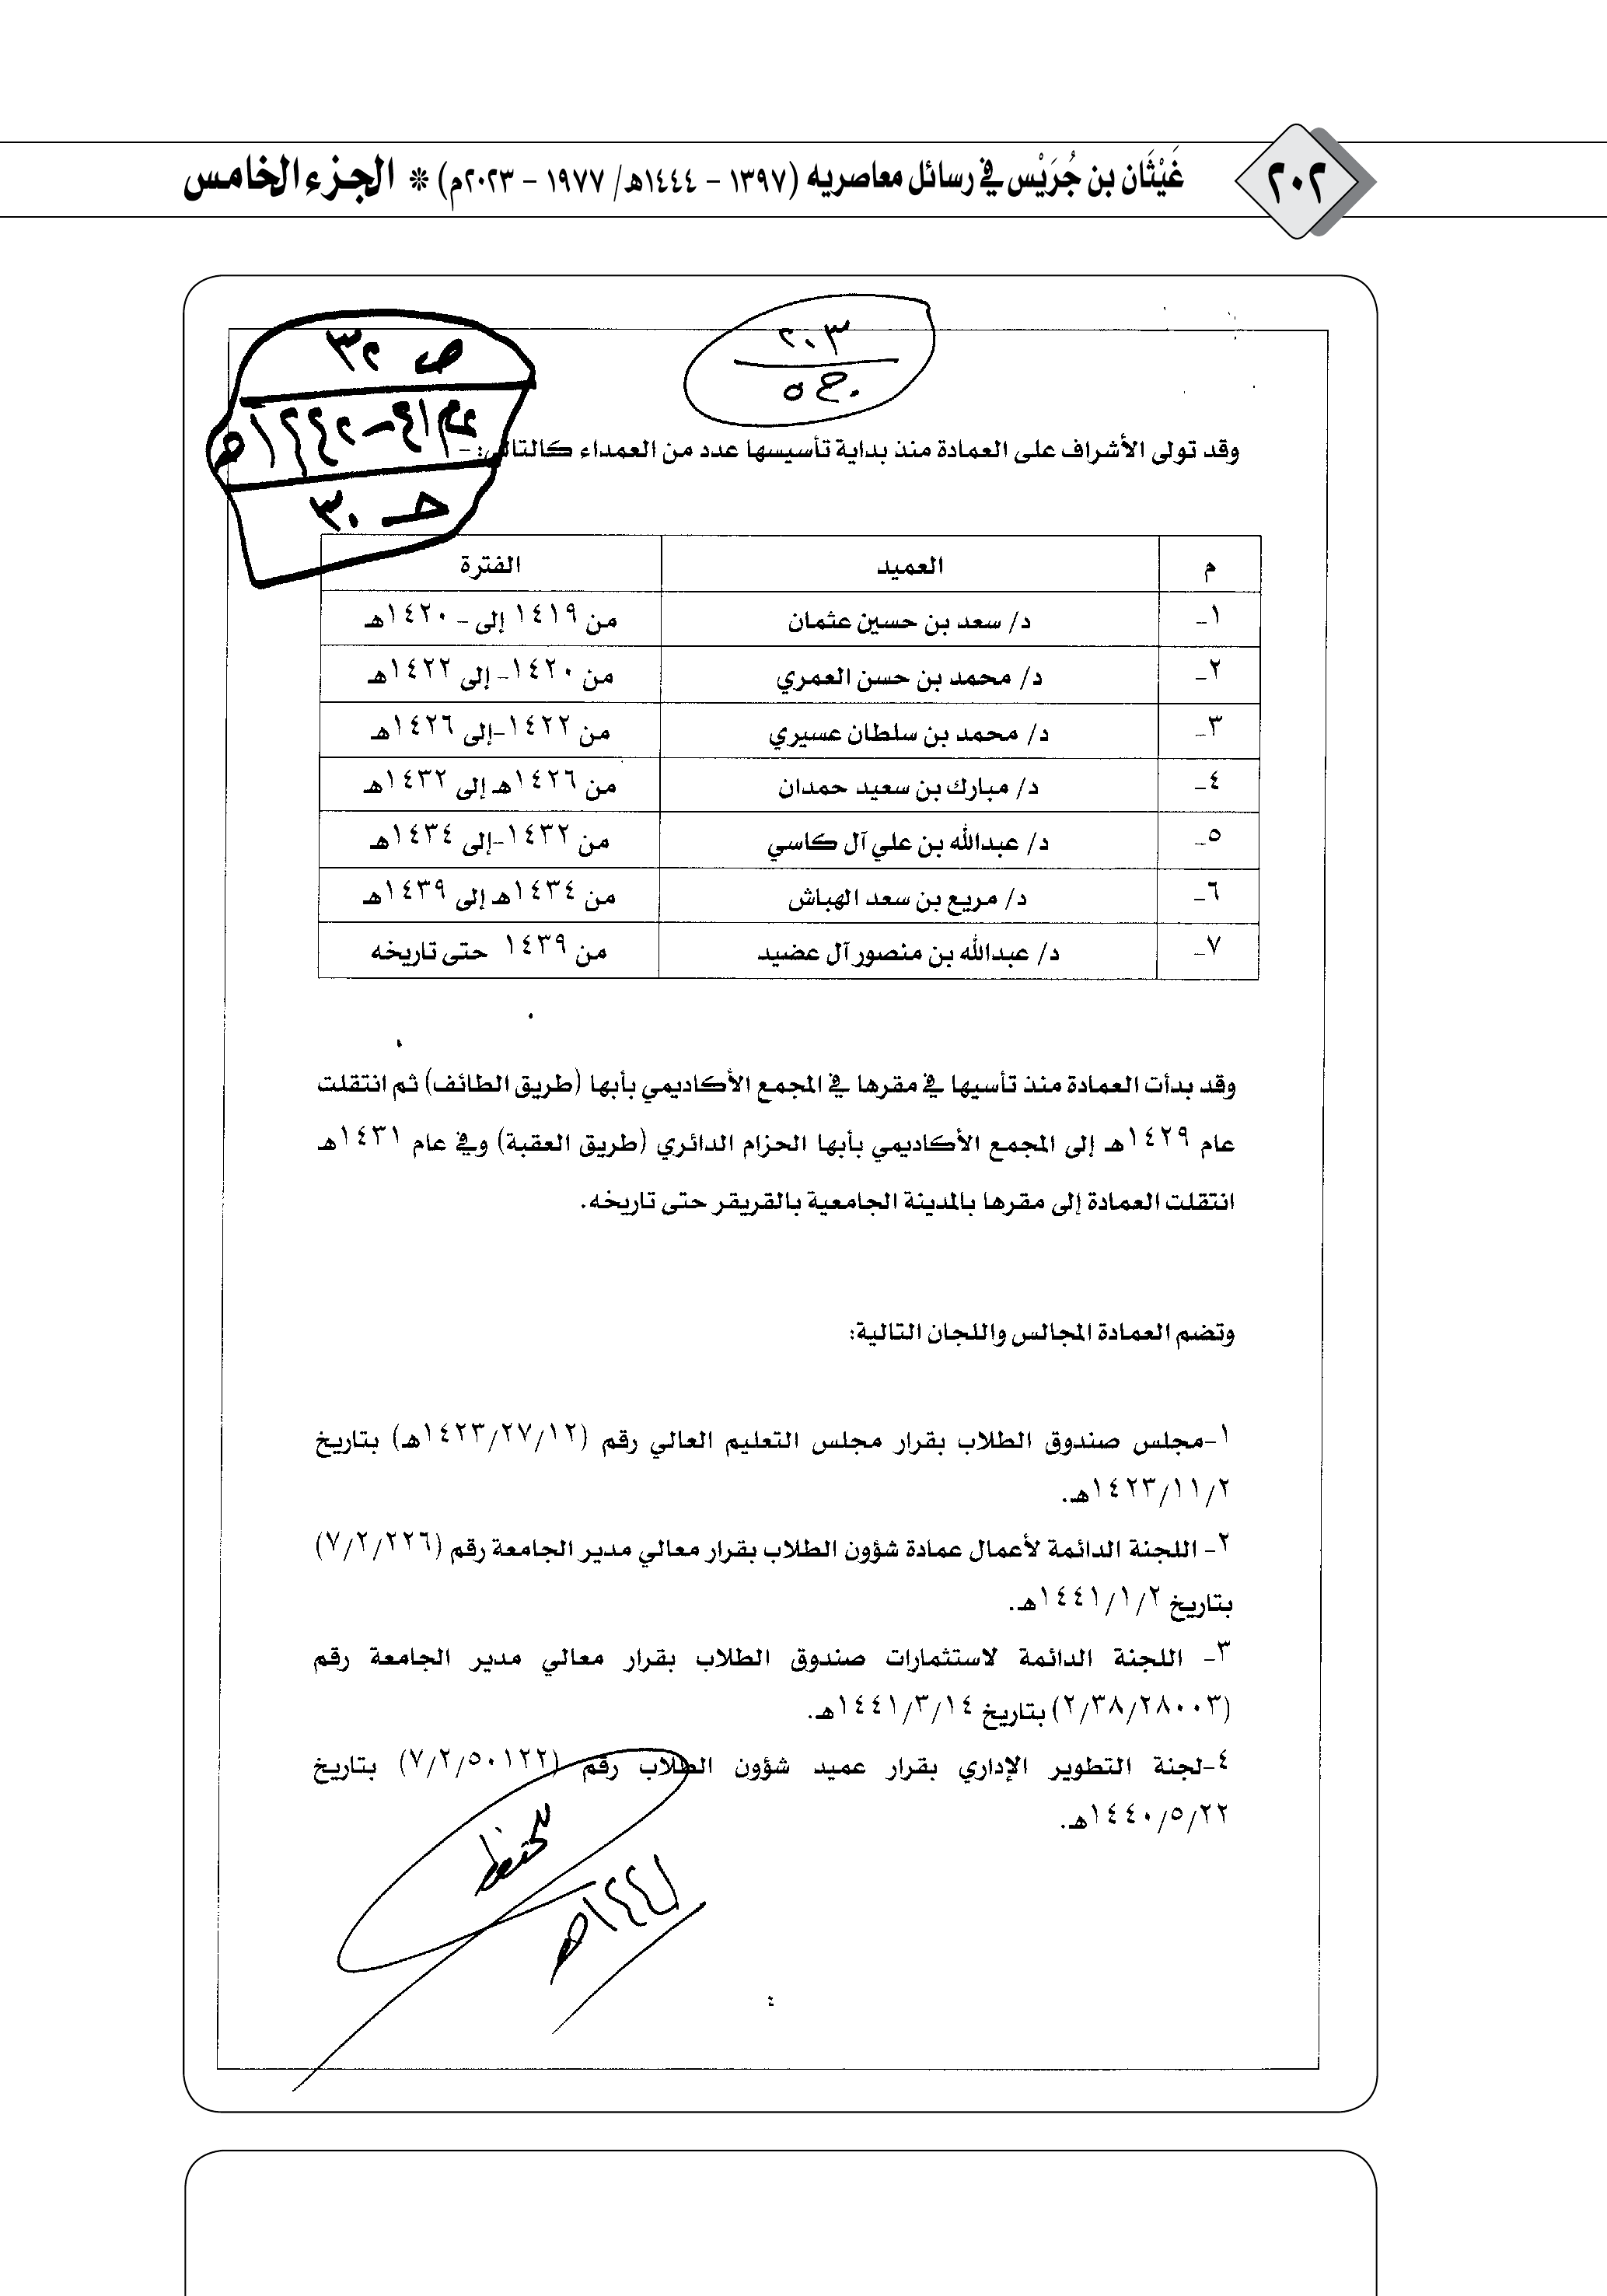 ٢٠٢
غَيْثَان بن جُرَيْس في رسائل معاصريه (١٣٩٧ - ١٤٤٤هـ/ ١٩٧٧ - ٢٠٢٣م) * الجزء الخامس
٢٠٣
ج٥
ص ٣٢
١٤٤٢هـ
ح ٣٠
وقد تولى الأشراف على العمادة منذ بداية تأسيسها عدد من العمداء كالتالي: -
م العميد الفترة
١- د/ سعد بن حسين عثمان من ١٤١٩ إلى - ١٤٢٠هـ
٢- د/ محمد بن حسن العمري من ١٤٢٠- إلى ١٤٢٢هـ
٣- د/ محمد بن سلطان عسيري من ١٤٢٢-إلى ١٤٢٦هـ
٤- د/ مبارك بن سعيد حمدان من ١٤٢٦هـ إلى ١٤٣٢هـ
٥- د/ عبدالله بن علي آل كاسي من ١٤٣٢-إلى ١٤٣٤هـ
٦- د/ مريع بن سعد الهباش من ١٤٣٤هـ إلى ١٤٣٩هـ
٧- د/ عبدالله بن منصور آل عضيد من ١٤٣٩ حتى تاريخه
وقد بدأت العمادة منذ تأسيها في مقرها في المجمع الأكاديمي بأبها (طريق الطائف) ثم انتقلت
عام ١٤٢٩هـ إلى المجمع الأكاديمي بأبها الحزام الدائري (طريق العقبة) وفي عام ١٤٣١هـ
انتقلت العمادة إلى مقرها بالمدينة الجامعية بالقريقر حتى تاريخه.
وتضم العمادة المجالس واللجان التالية:
١-مجلس صندوق الطلاب بقرار مجلس التعليم العالي رقم (١٤٢٣/٢٧/١٢هـ) بتاريخ
١٤٢٣/١١/٢هـ.
٢- اللجنة الدائمة لأعمال عمادة شؤون الطلاب بقرار معالي مدير الجامعة رقم (٧/٢/٢٢٦)
بتاريخ ١٤٤١/١/٢هـ.
٣- اللجنة الدائمة لاستثمارات صندوق الطلاب بقرار معالي مدير الجامعة رقم
(٢/٣٨/٢٨٠٠٣) بتاريخ ١٤٤١/٣/١٤هـ.
٤-لجنة التطوير الإداري بقرار عميد شؤون الطلاب رقم (٧/٢/٥٠١٢٢) بتاريخ
١٤٤٠/٥/٢٢هـ.
١٤٤١هـ
٤